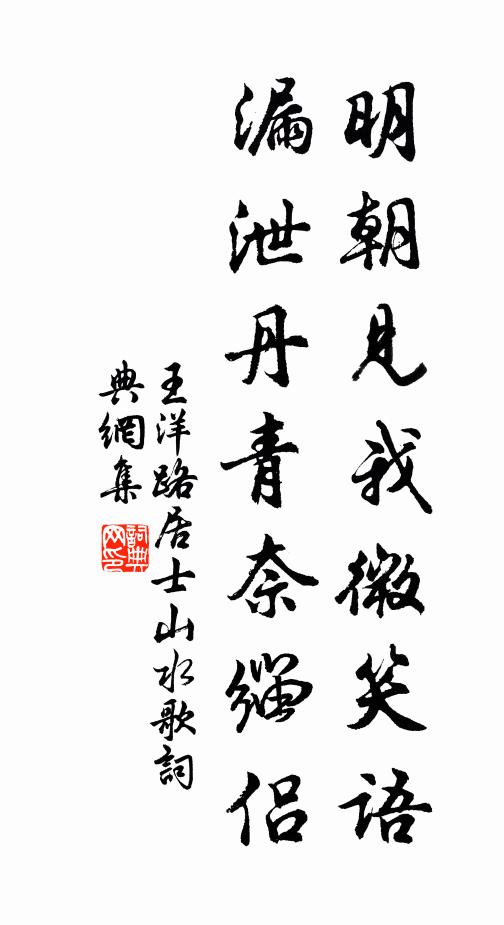 明朝見我微笑語
漏泄丹青奈緇侶
王洋路居士山水歌詞
典網集
詞典網印